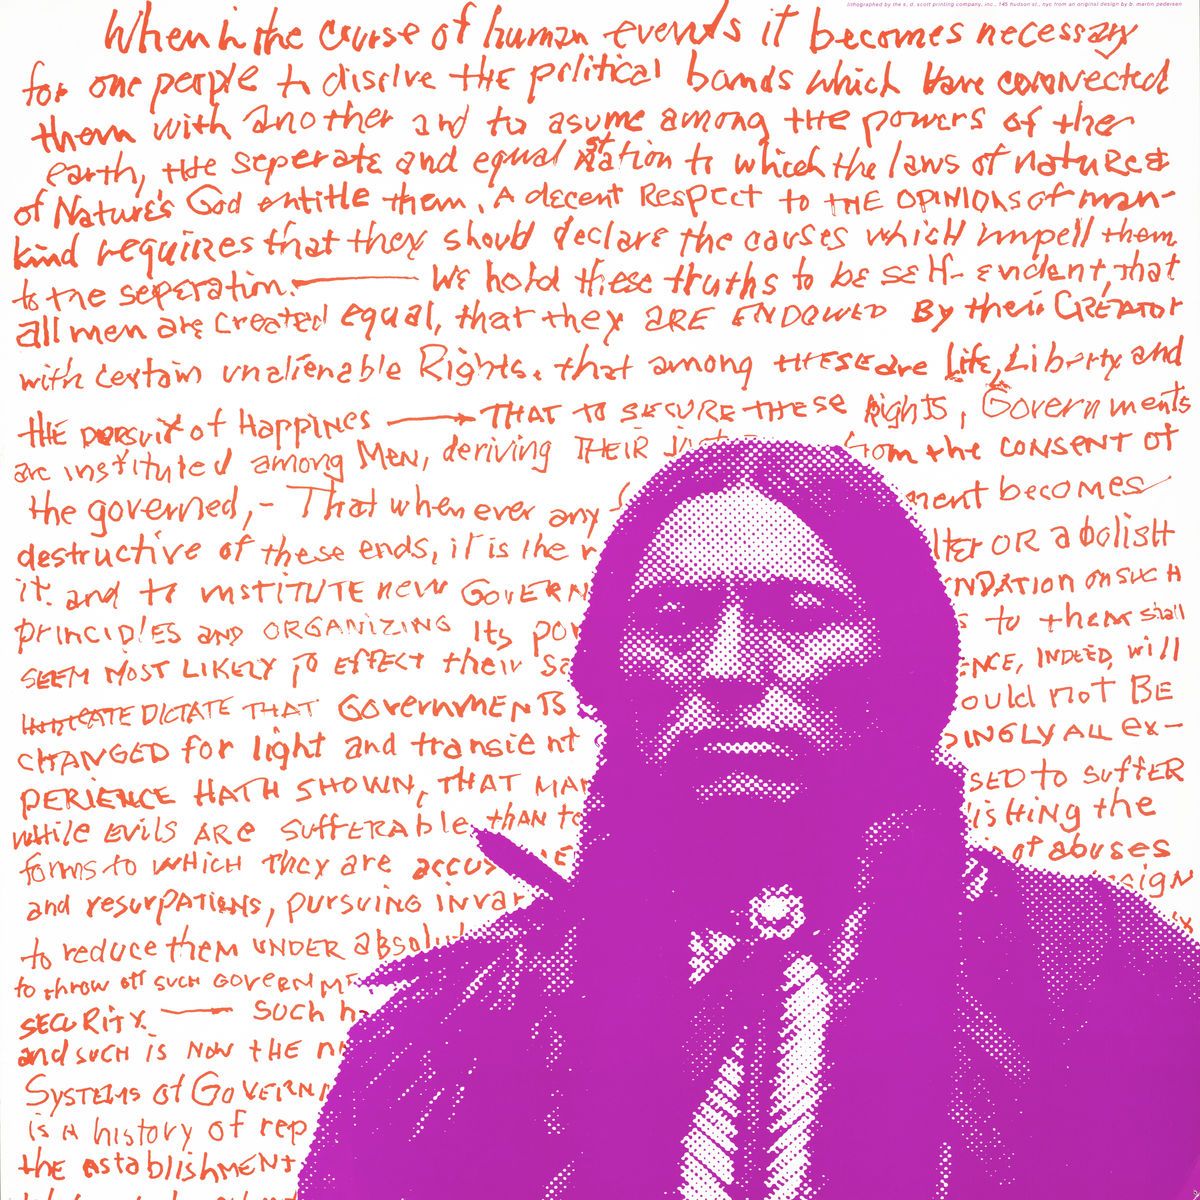 lithographed by the s. d. scott printing company, inc., 145 hudson st., nyc from an original design by b. martin pedersen
When in the course of human events it becomes necessary
for one people to disolve the political bonds which have connected
them with another and to asume among the powers of the
earth, the seperate and equal station to which the laws of nature &
of Nature's God entitle them, A decent Respect to tHE OPINIONS of man-
kind requires that they should declare the causes which impell them
to the seperation. — We hold these truths to be self-evident, that
all men are created equal, that they ARE ENDOWED By their CREATOR
with certain unalienable Rights. that among these are Life, Liberty and
tHE pursuit of Happines — THAT TO SECURE THESE Rights, Governments
are instituted among Men, deriving THEIR just from the CONSENT of
the governed,- That when ever any ment becomes
destructive of these ends, it is the r lter OR abolisH
it. and to institute new GOVERN NDATION on SUCH
principlES AND ORGANIZING Its pow s to them shall
SEEM MOST LIKELY TO EFFECT their sa ENCE, INDEED, will
DICTATE THAT GOVERNMENTS ould not BE
CHANGED for light and transient INGLY ALL EX-
PERIENCE HATH SHOWN, THAT MAN SED to SUFFER
while EVILS ARE SUFFERABLE than to isHing the
forms to WHICH they are accus of abuses
and resurpations, pursuing invar sign
to reduce them UNDER absolut
to throw off SUCH GOVERNM
SECURITY. — SUCH ha
and SUCH is NOW tHE n
SYSTEMS of GOVERNM
is A history of rep
the establishMENT